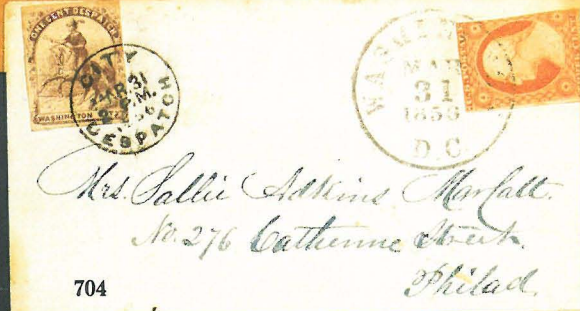 ONE CENT DESPATCH
WASHINGTON CITY
CITY
MAR 31
2 P.M.
1856
DESPATCH
WASHINGTON
MAR
31
1856
D.C.
Mrs. Sallie Adkins
No. 276 Catherine Street.
Philad.
704